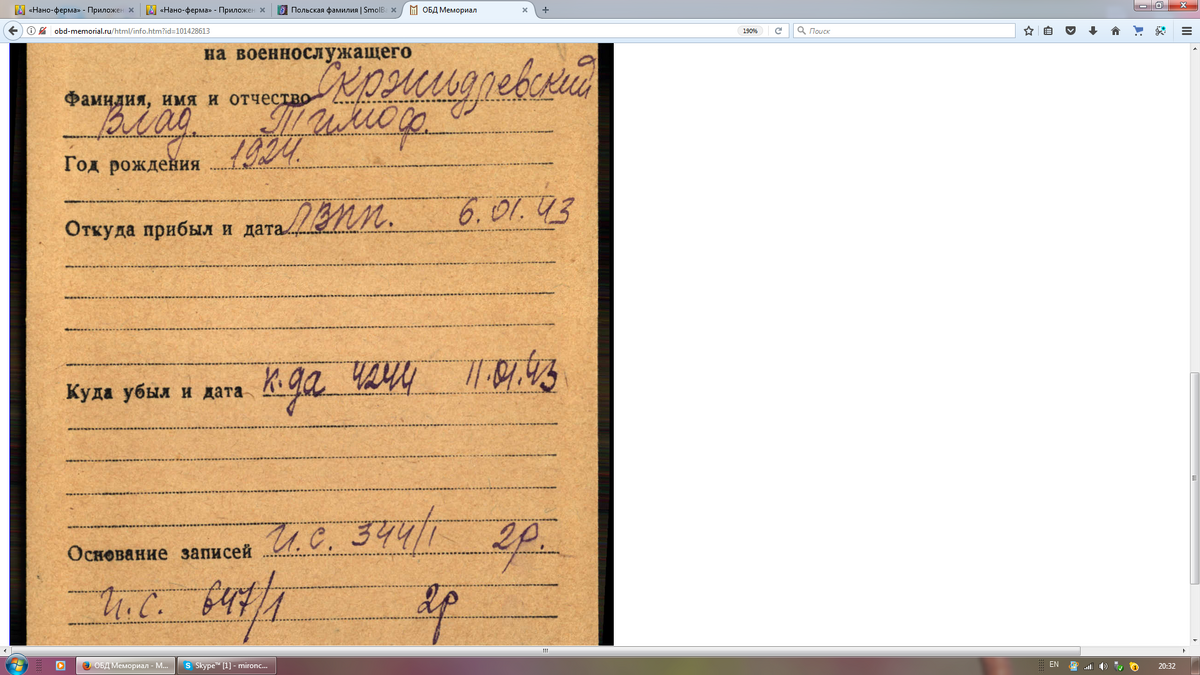 «Нано-ферма» - Приложен
«Нано-ферма» - Приложен
Польская фамилия | SmolBa
ОБД Мемориал
obd-memorial.ru/html/info.htm?id=101428613
190%
Поиск
на военнослужащего
Фамилия, имя и отчество Скржидлевский
Влад. Тимоф.
Год рождения 1924.
Откуда прибыл и дата ЛВПП. 6.01.43
Куда убыл и дата к-да 4244 11.01.43
Основание записей И.С. 344/1 2р.
И.С. 647/1 2р
ОБД Мемориал - M...
Skype™ [1] - mironc...
EN
20:32